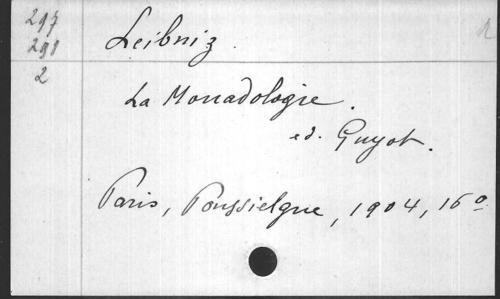 297
291
2
Leibniz
La Monadologie.
ed. Guyot.
Paris, Poussielgue, 1904, 16°